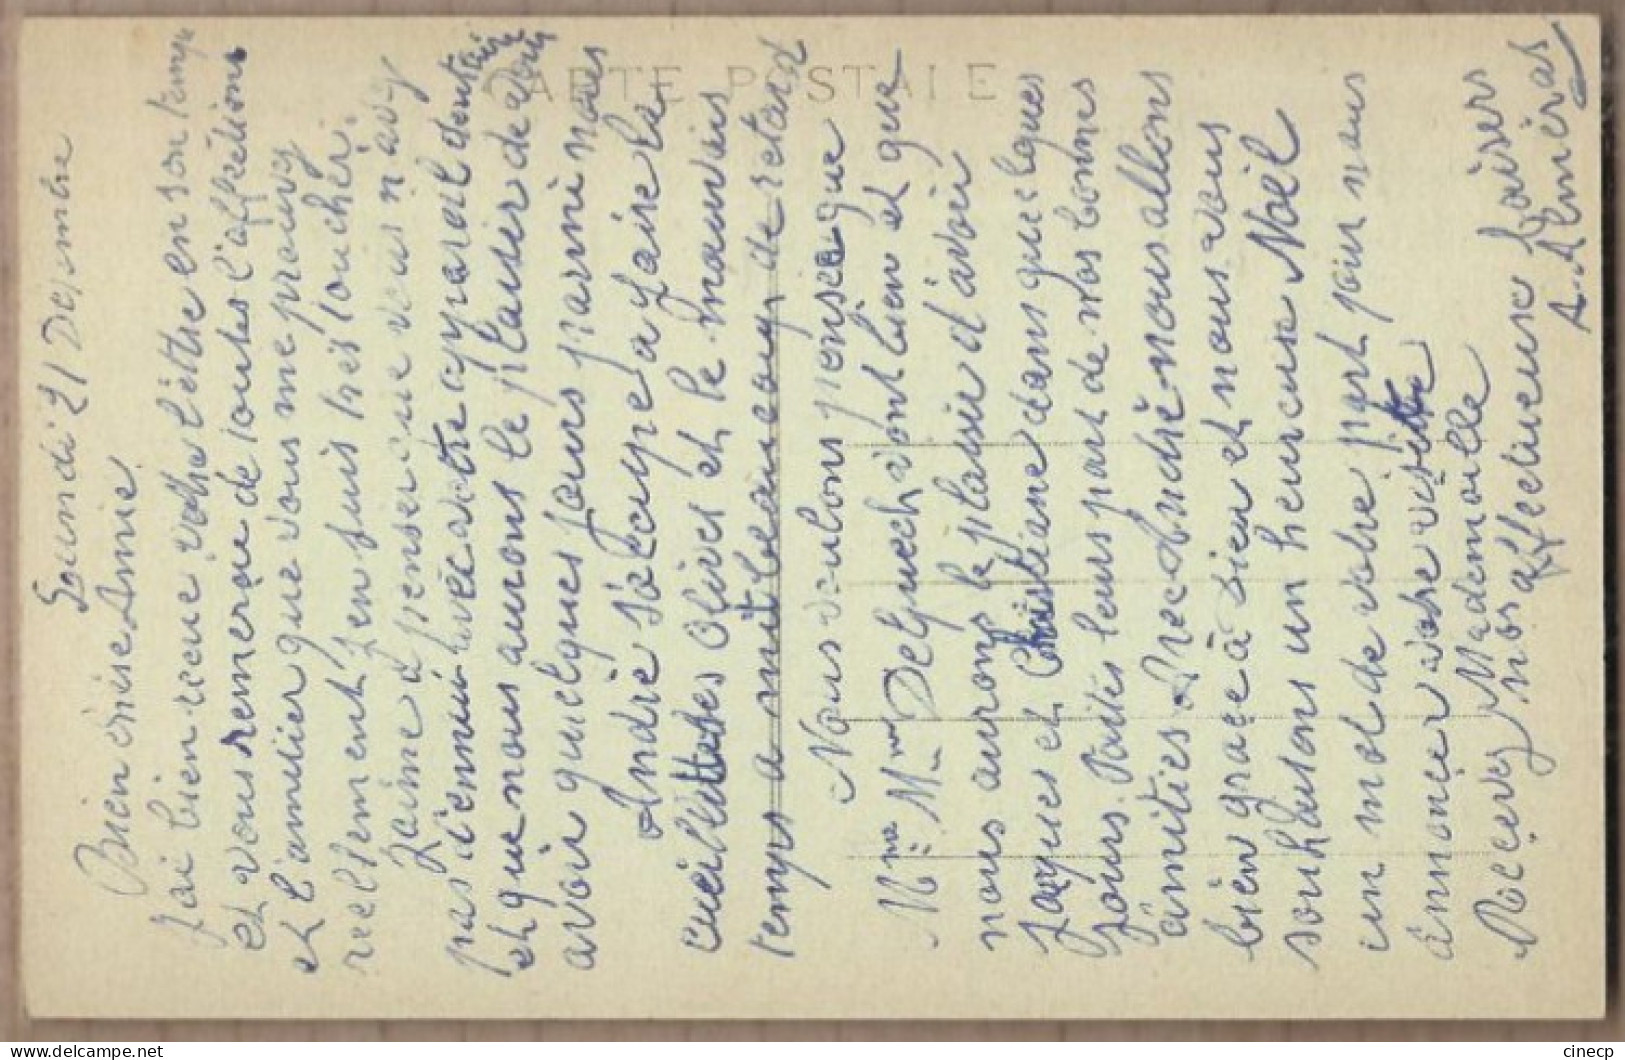 Lundi 21 Décembre
Bien chère Amie
J'ai bien recue votre lettre en son temps
et vous remercie de toutes l'affections
et l'amitier que vous me prouvez
reellement j'en suis très toucher.
J'aime a penser que vous n'avez
pas d'ennui avec votre appareil dentaire
et que nous aurons le plaisir de vous
avoir quelques jours parmi nous
Andrè s'occupe a faire les
cueillettes Olives et le mauvais
temps a mit beaucoup de retard
Nous voulons pense que
Mme Mr Delpuech vont bien et que
nous aurons le plaisir d'avoir
Jacques et Christiane dans quelques
jours. Faites leurs part de nos bonnes
amitiès Avec Andrè nous allons
bien grace à Dieu et nous vous
souhaitons un heureuse Noël
un mot de votre part pour nous
annonçer votre visite
Mademoiselle
Reçevez nos affectueuse baisers
A. Almèras
CARTE POSTALE
cinecp